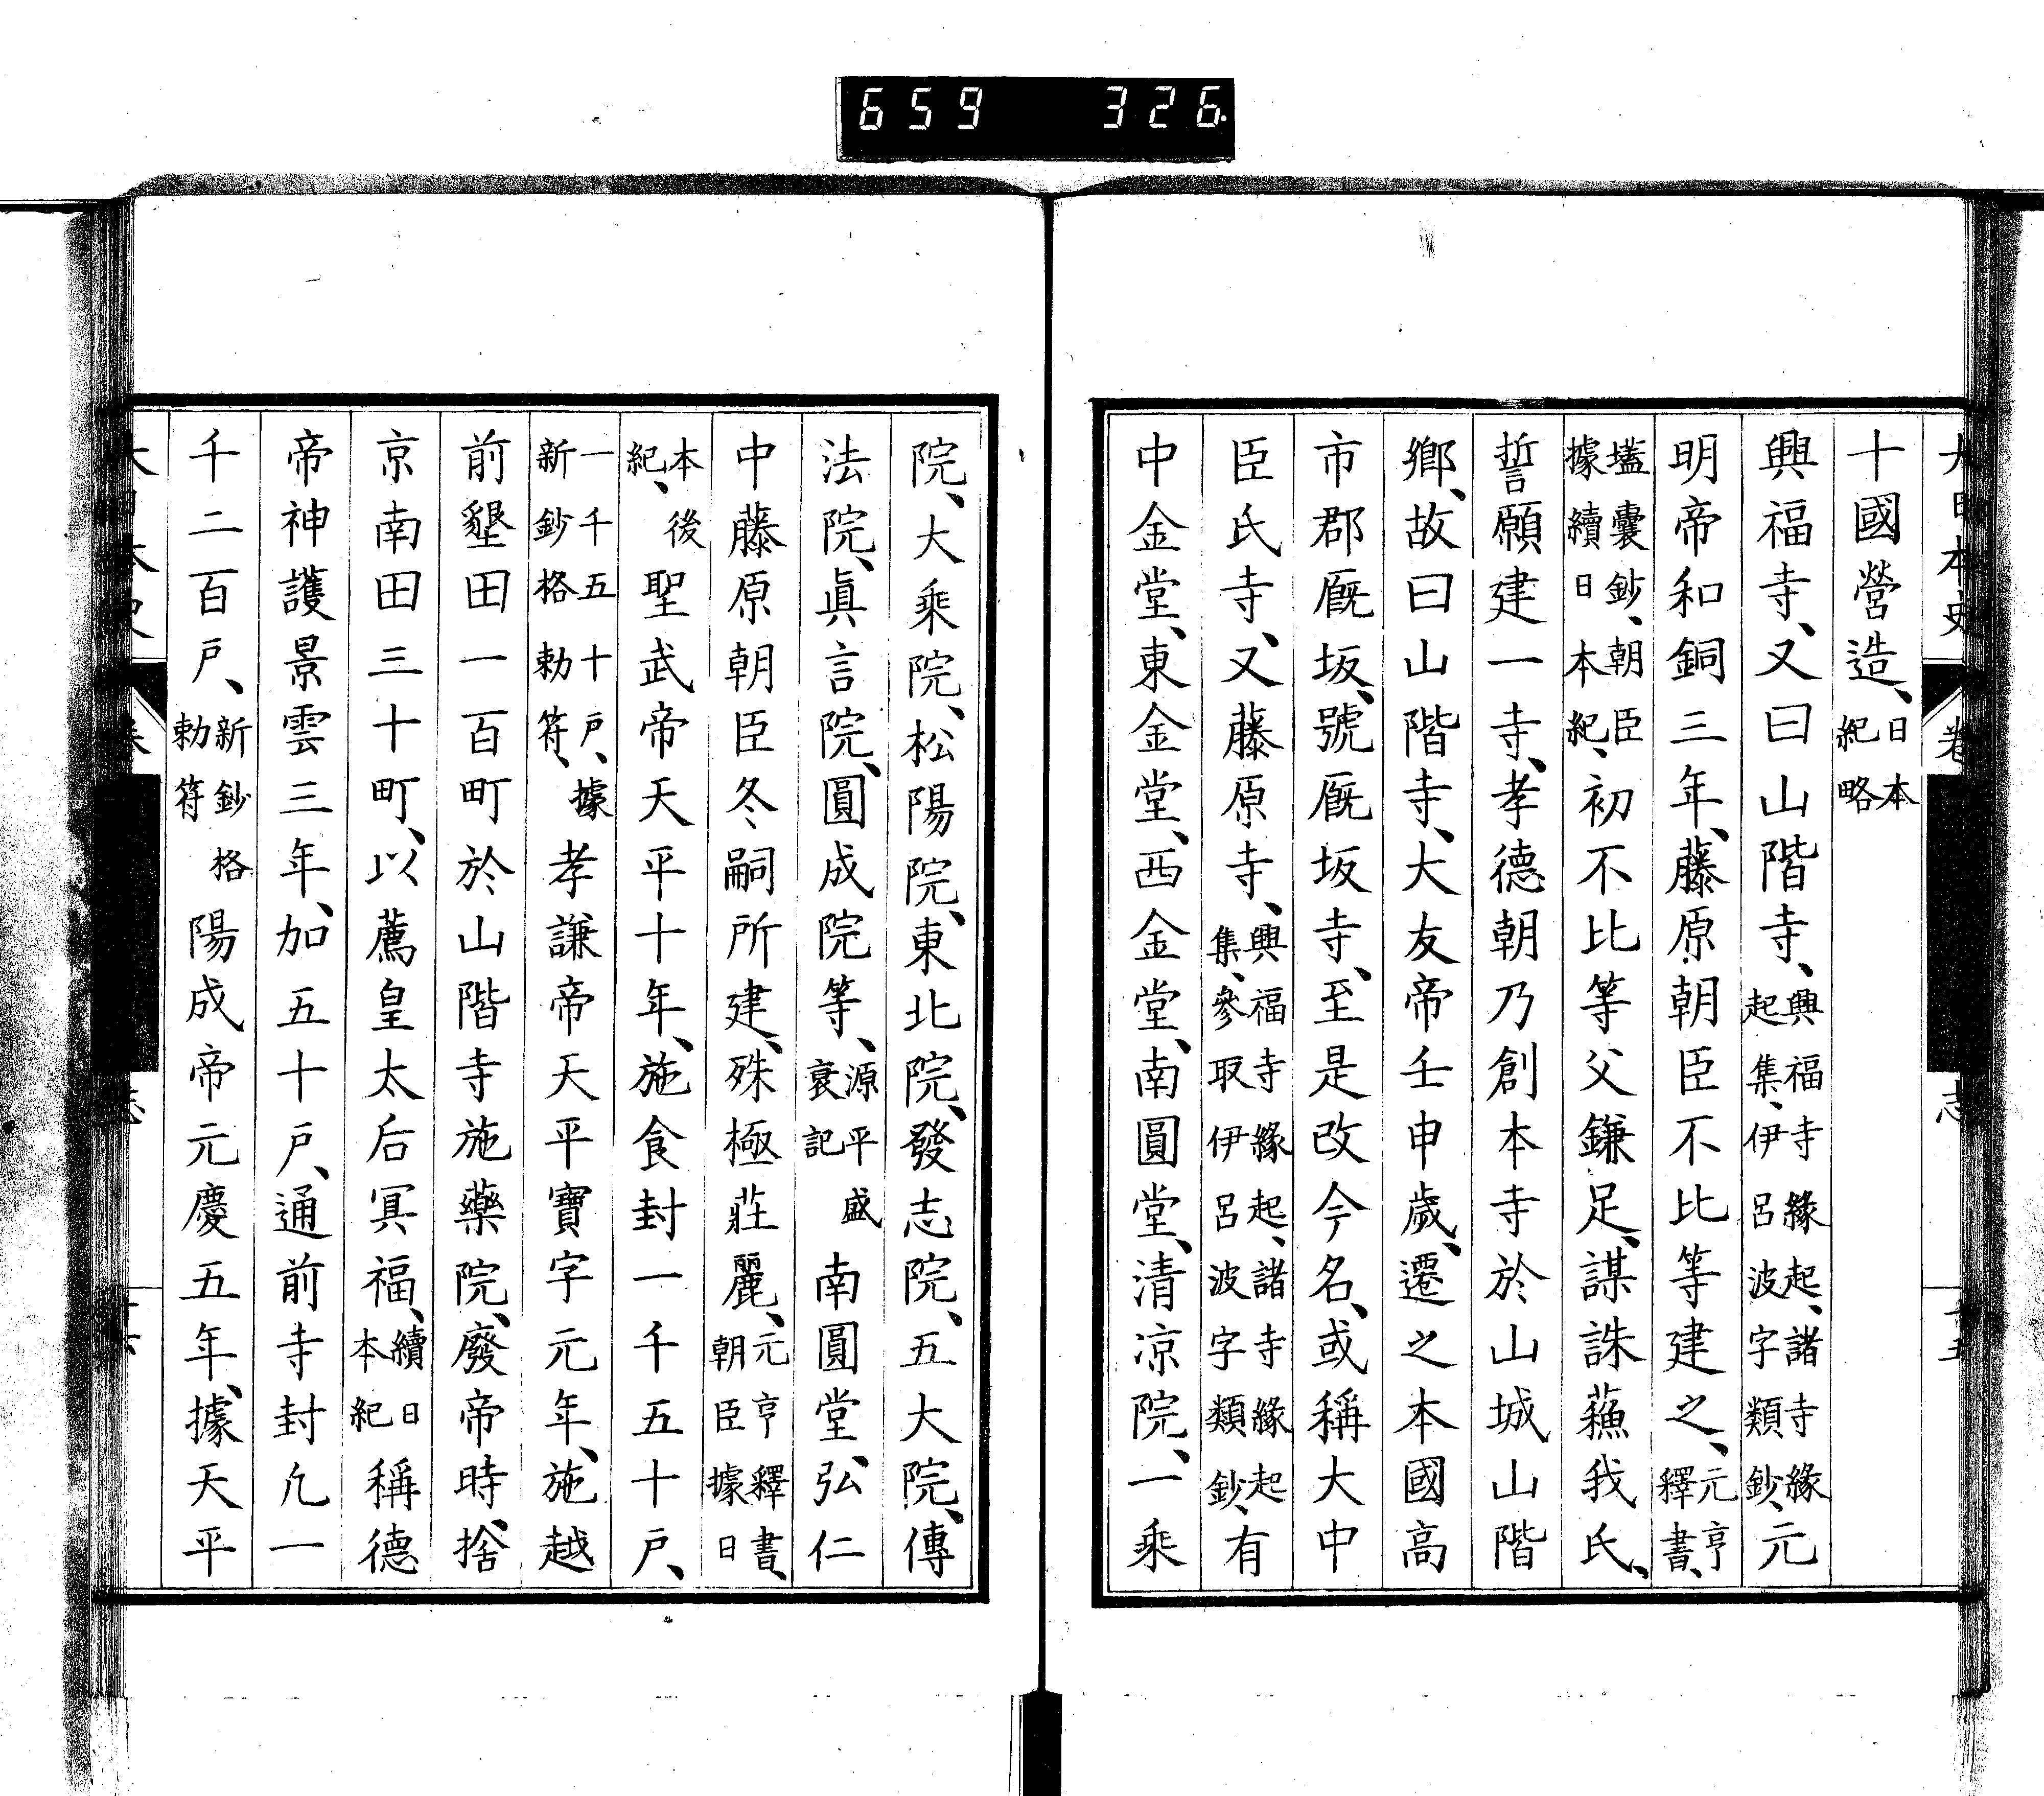 659 326
大日本史 卷 志
十國營造、日本紀略
興福寺、又曰山階寺、興福寺緣起、諸寺緣起集、伊呂波字類鈔、元
明帝和銅三年、藤原朝臣不比等建之、元亨釋書、
壒囊鈔、朝臣據續日本紀、初不比等父鎌足、謀誅蘇我氏、
誓願建一寺、孝德朝乃創本寺於山城山階
鄉、故曰山階寺、大友帝壬申歲、遷之本國高
市郡厩坂、號厩坂寺、至是改今名、或稱大中
臣氏寺、又藤原寺、興福寺緣起、諸寺緣起集、參取伊呂波字類鈔、有
中金堂、東金堂、西金堂、南圓堂、清凉院、一乘
院、大乘院、松陽院、東北院、發志院、五大院、傳
法院、眞言院、圓成院等、源平盛衰記 南圓堂、弘仁
中藤原朝臣冬嗣所建、殊極莊麗、元亨釋書、朝臣據日
本後紀、聖武帝天平十年、施食封一千五十戶、
一千五十戶、據新鈔格勅符、孝謙帝天平寶字元年、施越
前墾田一百町於山階寺施藥院、廢帝時、捨
京南田三十町、以薦皇太后冥福、續日本紀 稱德
帝神護景雲三年、加五十戶、通前寺封凢一
千二百戶、新鈔格勅符 陽成帝元慶五年、據天平